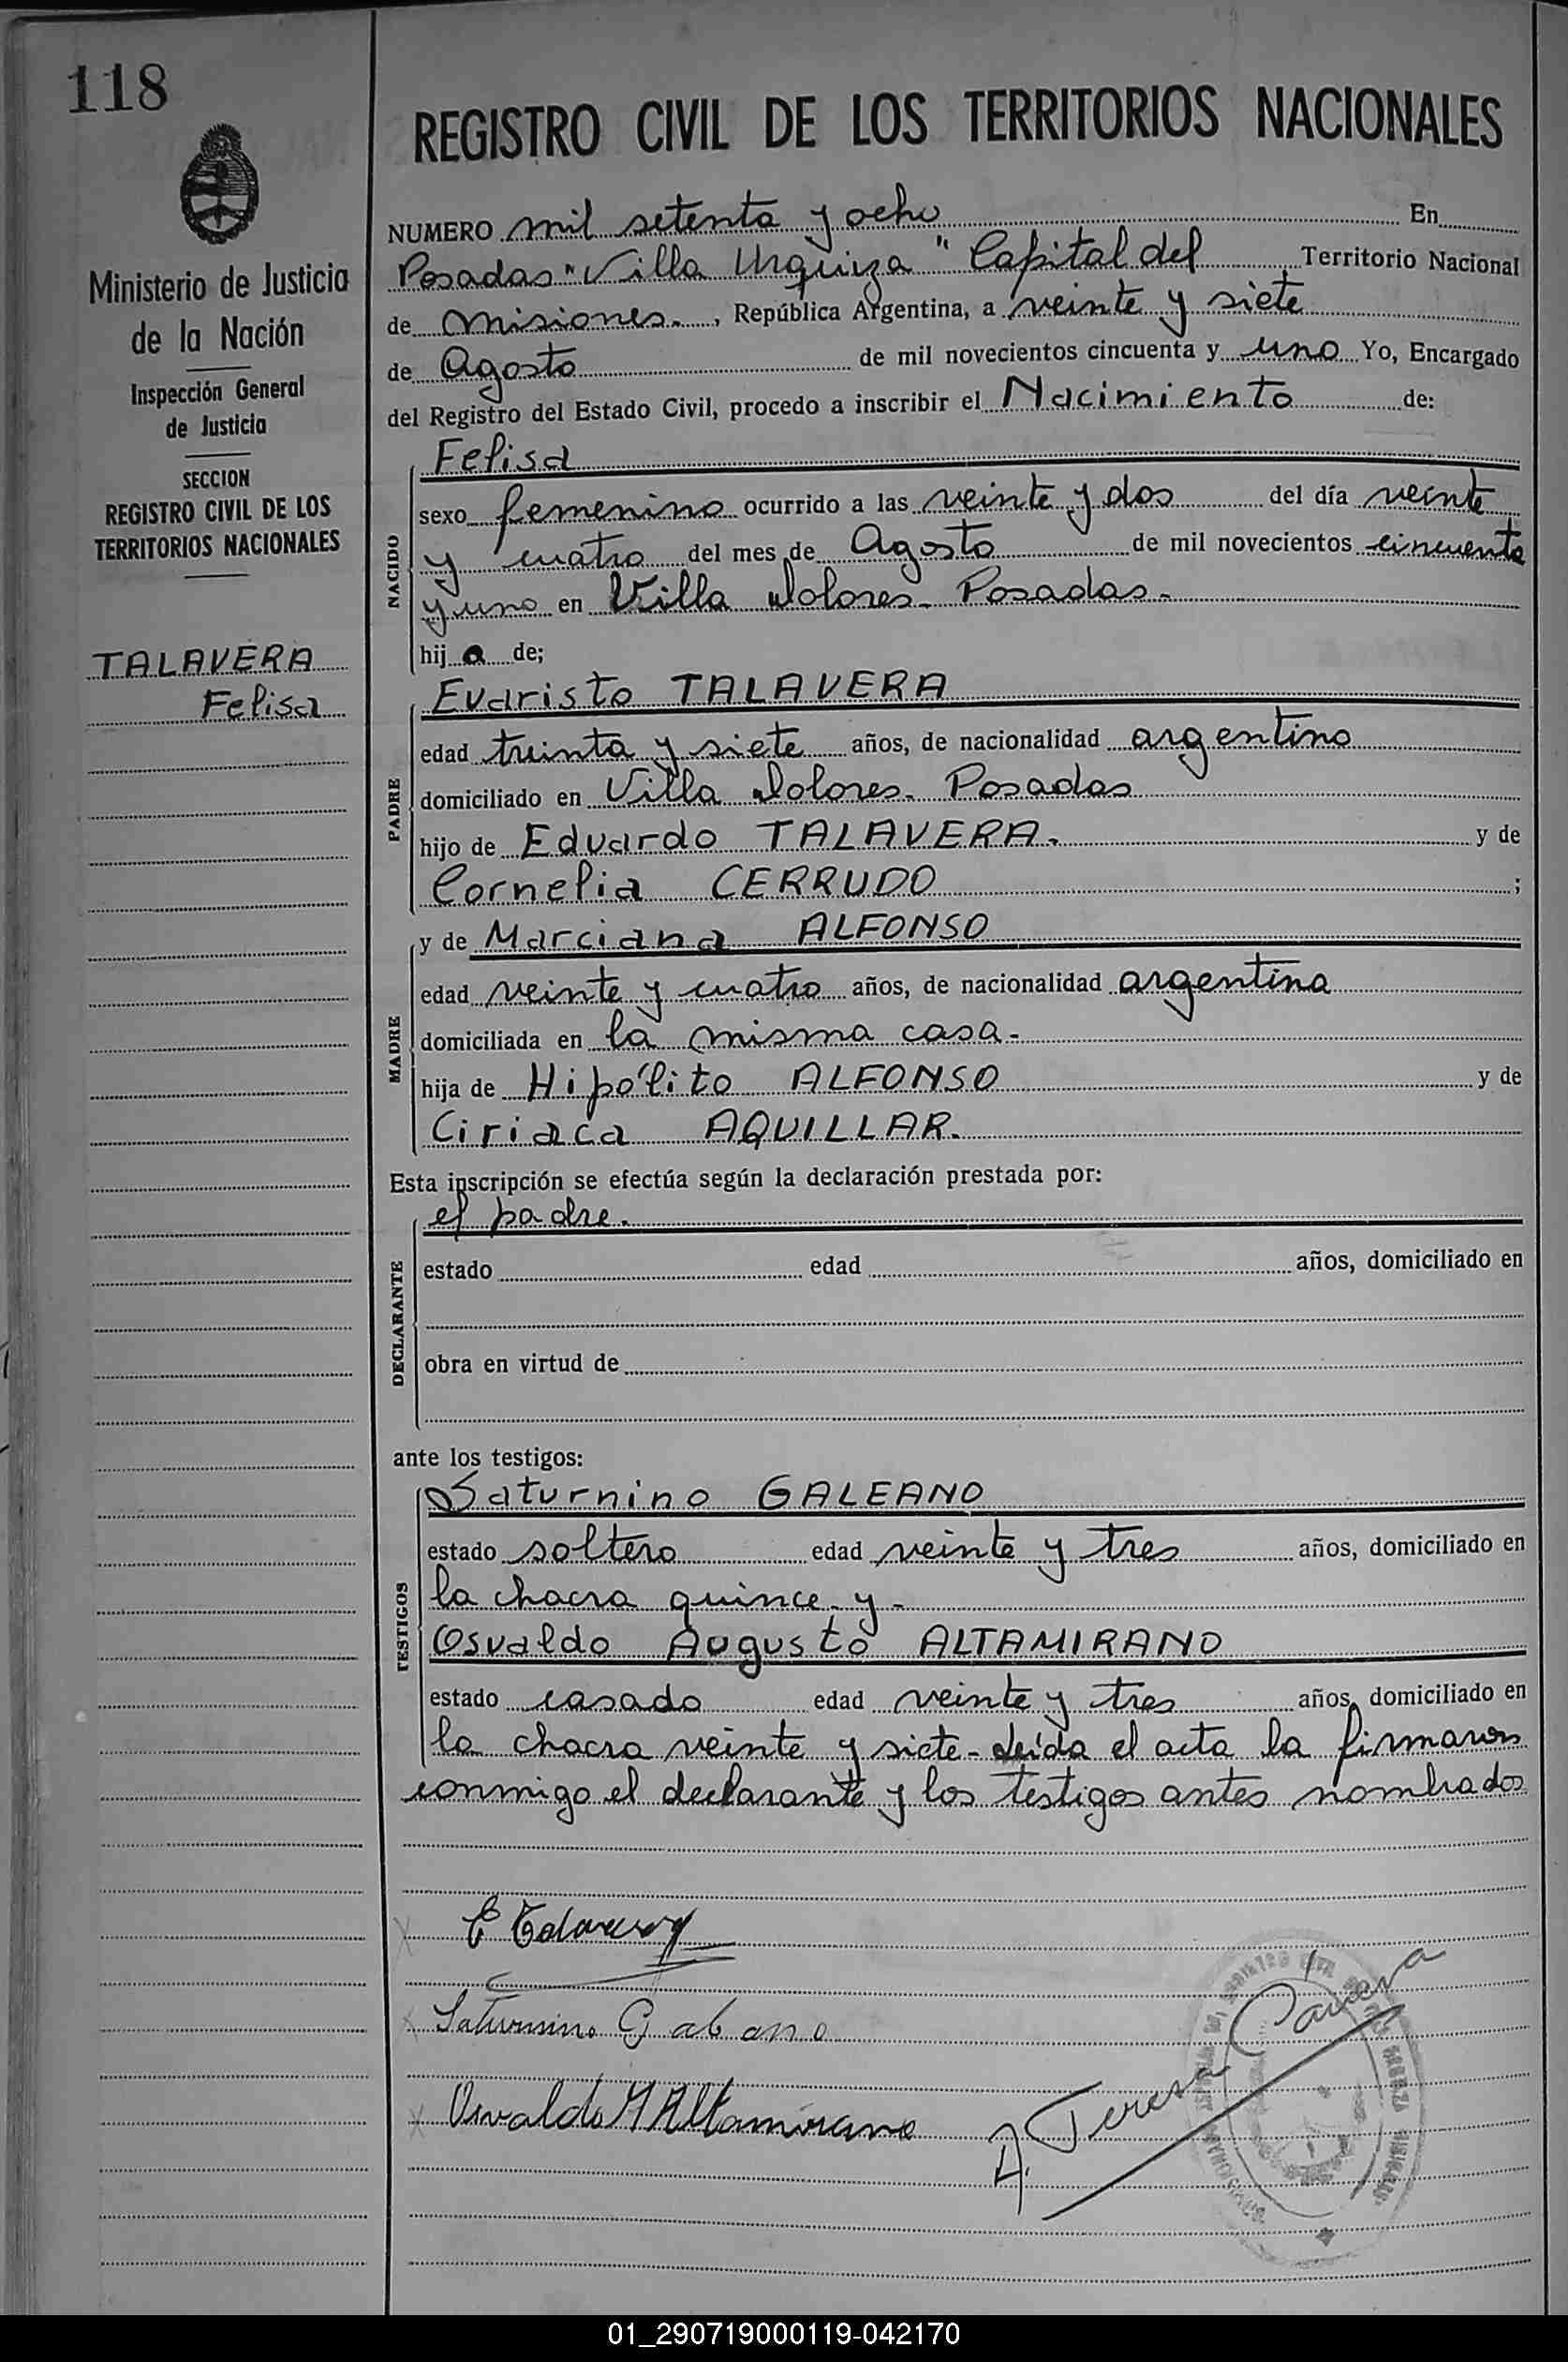 118
Ministerio de Justicia
de la Nación
Inspección General
de Justicia
SECCION
REGISTRO CIVIL DE LOS
TERRITORIOS NACIONALES
TALAVERA
Felisa
REGISTRO CIVIL DE LOS TERRITORIOS NACIONALES
NUMERO mil setenta y ocho En
Posadas "Villa Urquiza" Capital del Territorio Nacional
de Misiones. , República Argentina, a veinte y siete
de Agosto de mil novecientos cincuenta y uno Yo, Encargado
del Registro del Estado Civil, procedo a inscribir el Nacimiento de:
NACIDO
Felisa
sexo femenino ocurrido a las veinte y dos del día veinte
y cuatro del mes de Agosto de mil novecientos cincuenta
y uno en Villa Dolores - Posadas -
hij a de;
PADRE
Evaristo TALAVERA
edad treinta y siete años, de nacionalidad argentino
domiciliado en Villa Dolores - Posadas
hijo de Eduardo TALAVERA. y de
Cornelia CERRUDO ;
MADRE
y de Marciana ALFONSO
edad veinte y cuatro años, de nacionalidad argentina
domiciliada en la misma casa -
hija de Hipólito ALFONSO y de
Ciriaca AQUILLAR.
Esta inscripción se efectúa según la declaración prestada por:
DECLARANTE
el padre.
estado edad años, domiciliado en
obra en virtud de
ante los testigos:
TESTIGOS
Saturnino GALEANO
estado soltero edad veinte y tres años, domiciliado en
la chacra quince y -
Osvaldo Augusto ALTAMIRANO
estado casado edad veinte y tres años, domiciliado en
la chacra veinte y siete - Leída el acta la firmaron
conmigo el declarante y los testigos antes nombrados
E Talavera
Saturnino Galeano
Osvaldo A Altamirano
A. Teresa
01_290719000119-042170